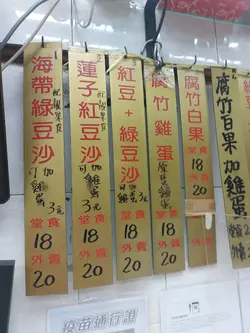 海帶綠豆沙
可加雞蛋3元
堂食
18
外賣
20
2
蓮子紅豆沙
可加雞蛋3元
堂食
18
外賣
20
紅豆+綠豆沙
可加雞蛋3元
堂食
18
外賣
20
腐竹雞蛋
堂食
18
外賣
20
腐竹白果
堂食
18
外賣
20
腐竹白果加雞蛋
疫苗通行證